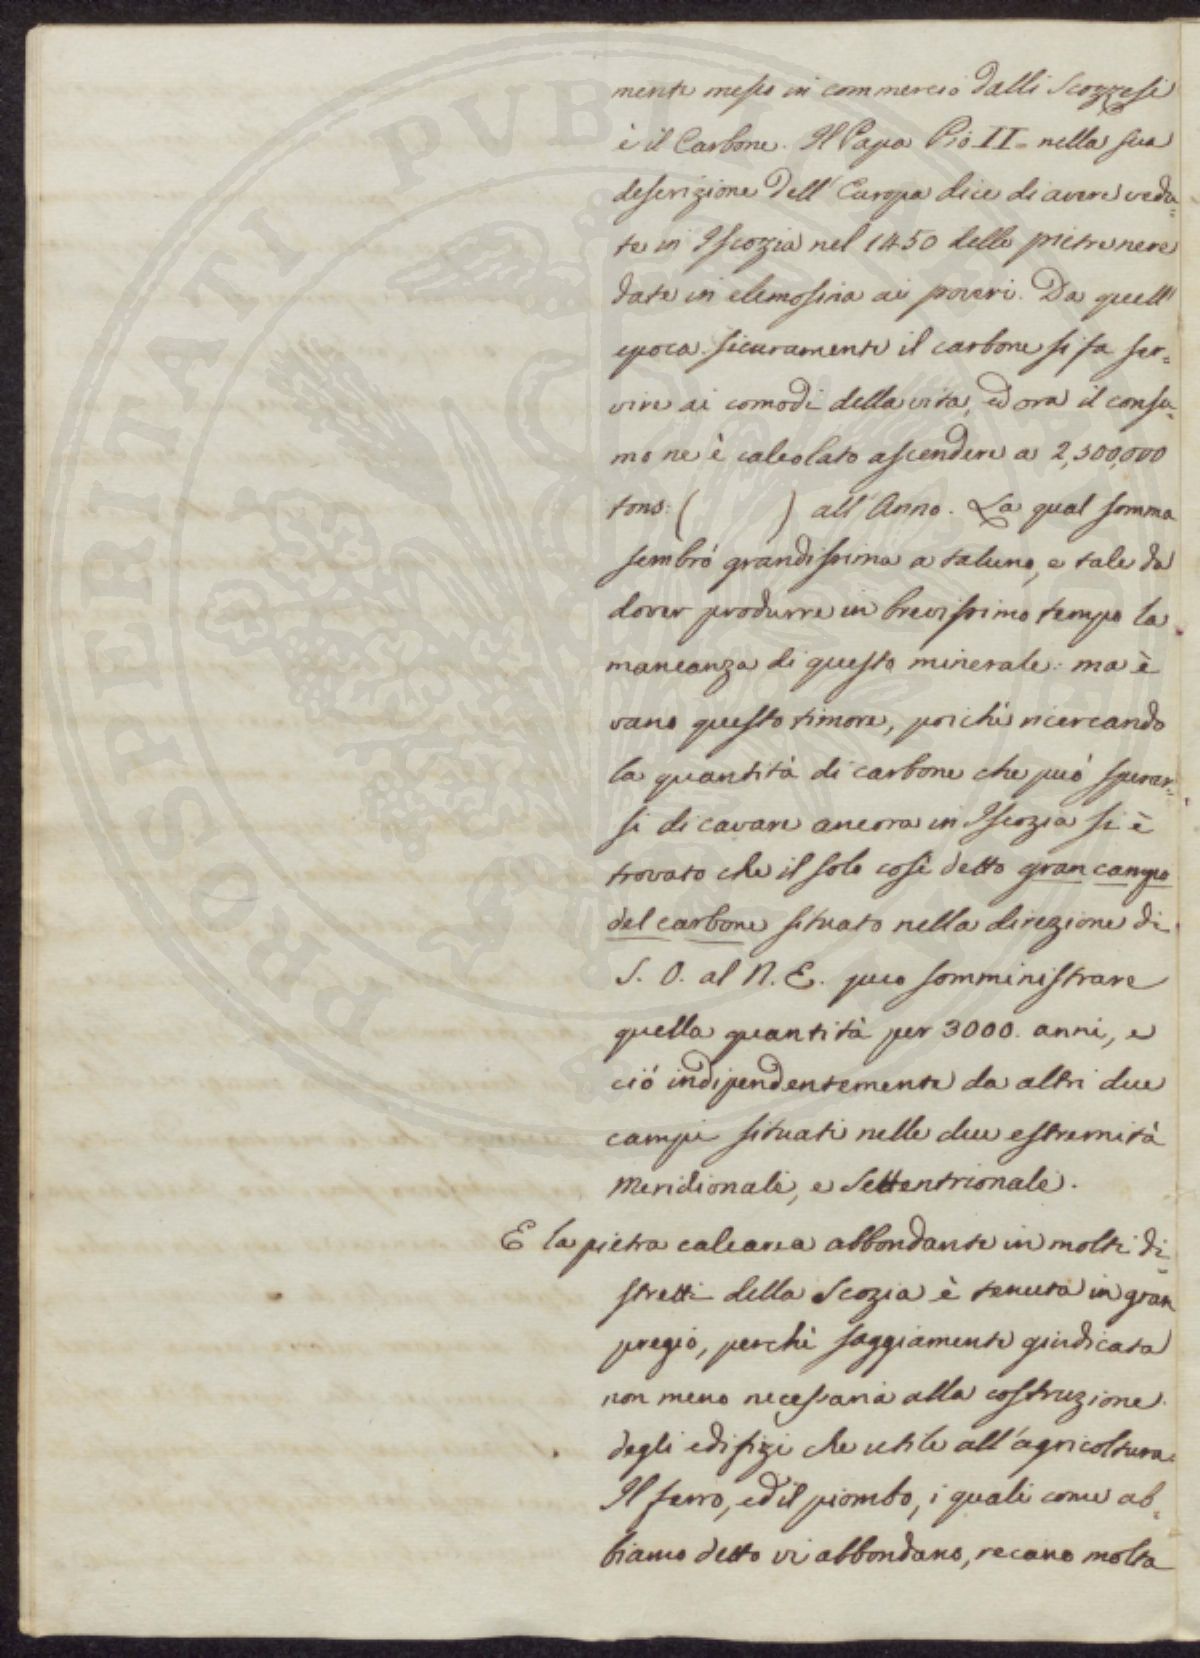 mente messo in commercio dalli Scozzesi
è il Carbone. Il Papa Pio II. nella sua
descrizione dell'Europa dice di avere vedu=
te in Iscozia nel 1450 delle pietre nere
date in elemosina ai poveri. Da quell'
epoca sicuramente il carbone si fa ser=
vire ai comodi della vita, ed ora il consu=
mo ne è calcolato ascendere a 2,500,000
tons: (          ) all'Anno. La qual somma
sembrò grandissima a taluno, e tale da
dover produrre in brevissimo tempo la
mancanza di questo minerale: ma è
vano questo timore, poichè ricercando
la quantità di carbone che può sperar=
si di cavare ancora in Iscozia si è
trovato che il solo così detto gran campo
del carbone situato nella direzione di
S. O. al N. E. puo somministrare
quella quantità per 3000. anni, e
ciò indipendentemente da altri due
campi situati nelle due estremità
Meridionale, e Settentrionale.
E la pietra calcarea abbondante in molti di=
stretti della Scozia è tenuta in gran
pregio, perchè saggiamente giudicata
non meno necessaria alla costruzione
degli edifizi che utile all'agricoltura.
Il ferro, ed il piombo, i quali come ab=
biamo detto vi abbondano, recano molta
PROSPERITATI PVBLI